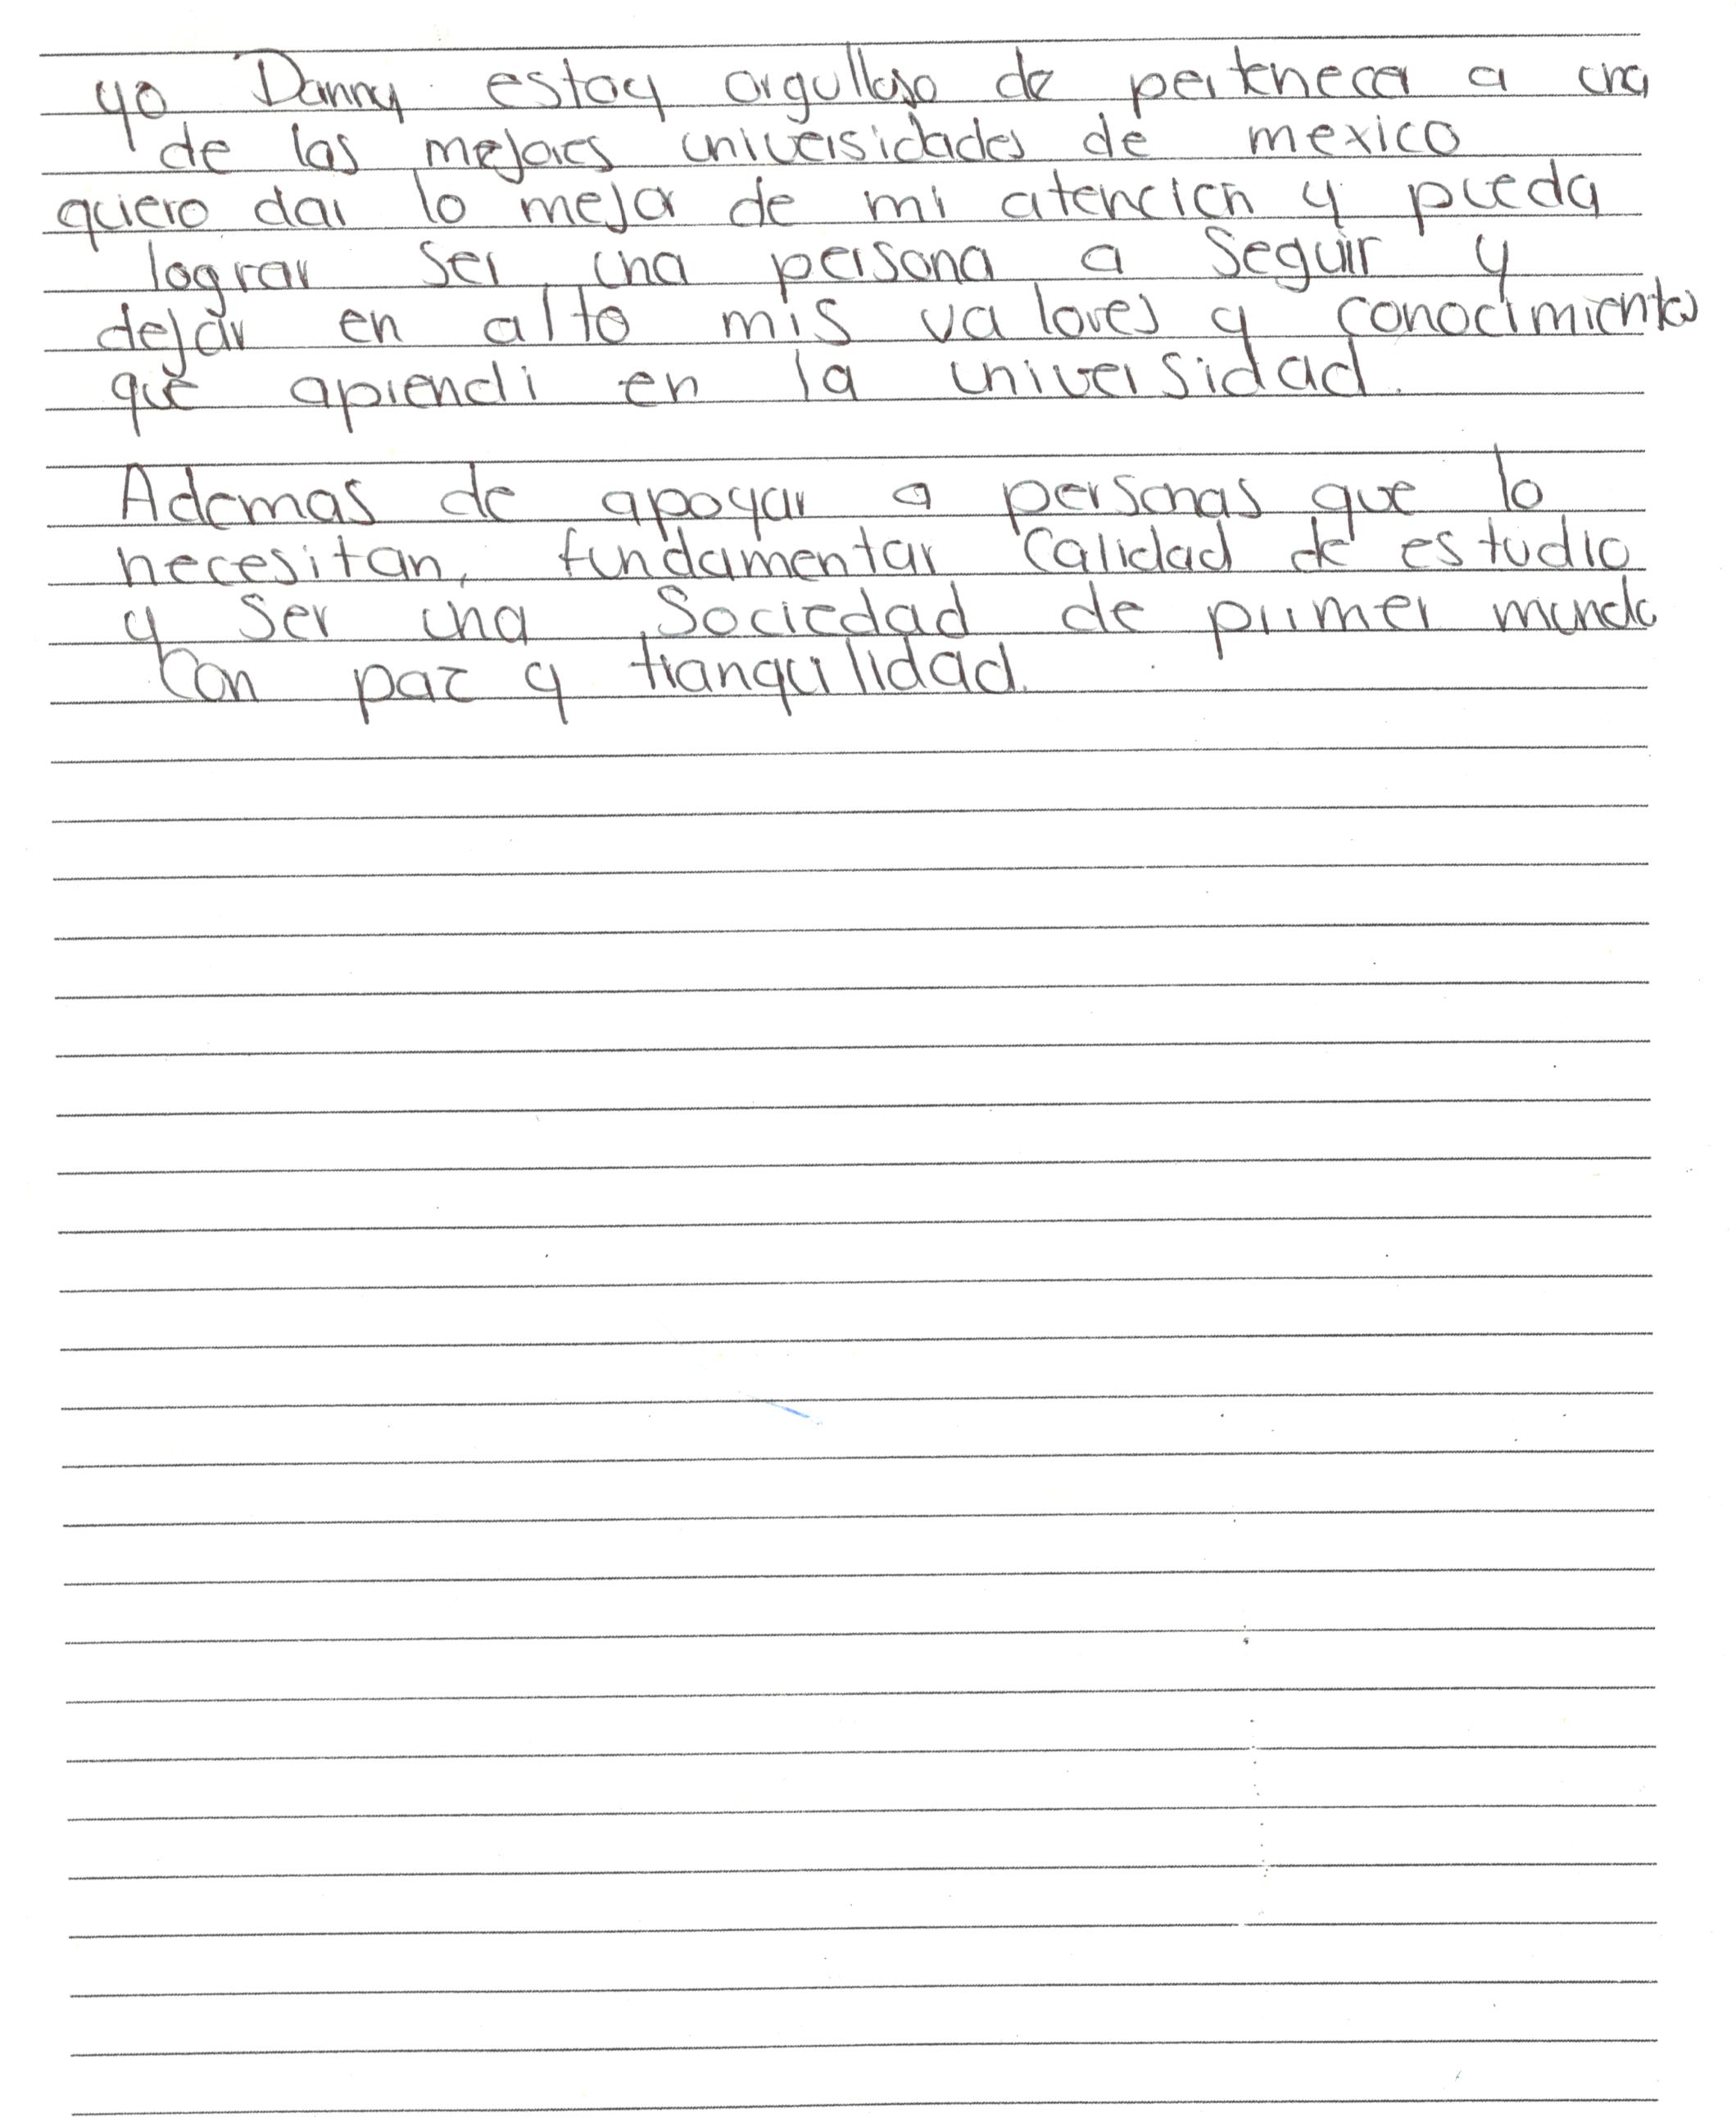 yo Danny estoy orgulloso de pertenecer a una
de las mejores universidades de mexico
quiero dar lo mejor de mi atencion y pueda
lograr ser una persona a seguir y
dejar en alto mis valores y conocimientos
que aprendi en la universidad.
Ademas de apoyar a personas que lo
necesitan, fundamentar calidad de estudio
y ser una sociedad de primer mundo
con paz y tranquilidad.